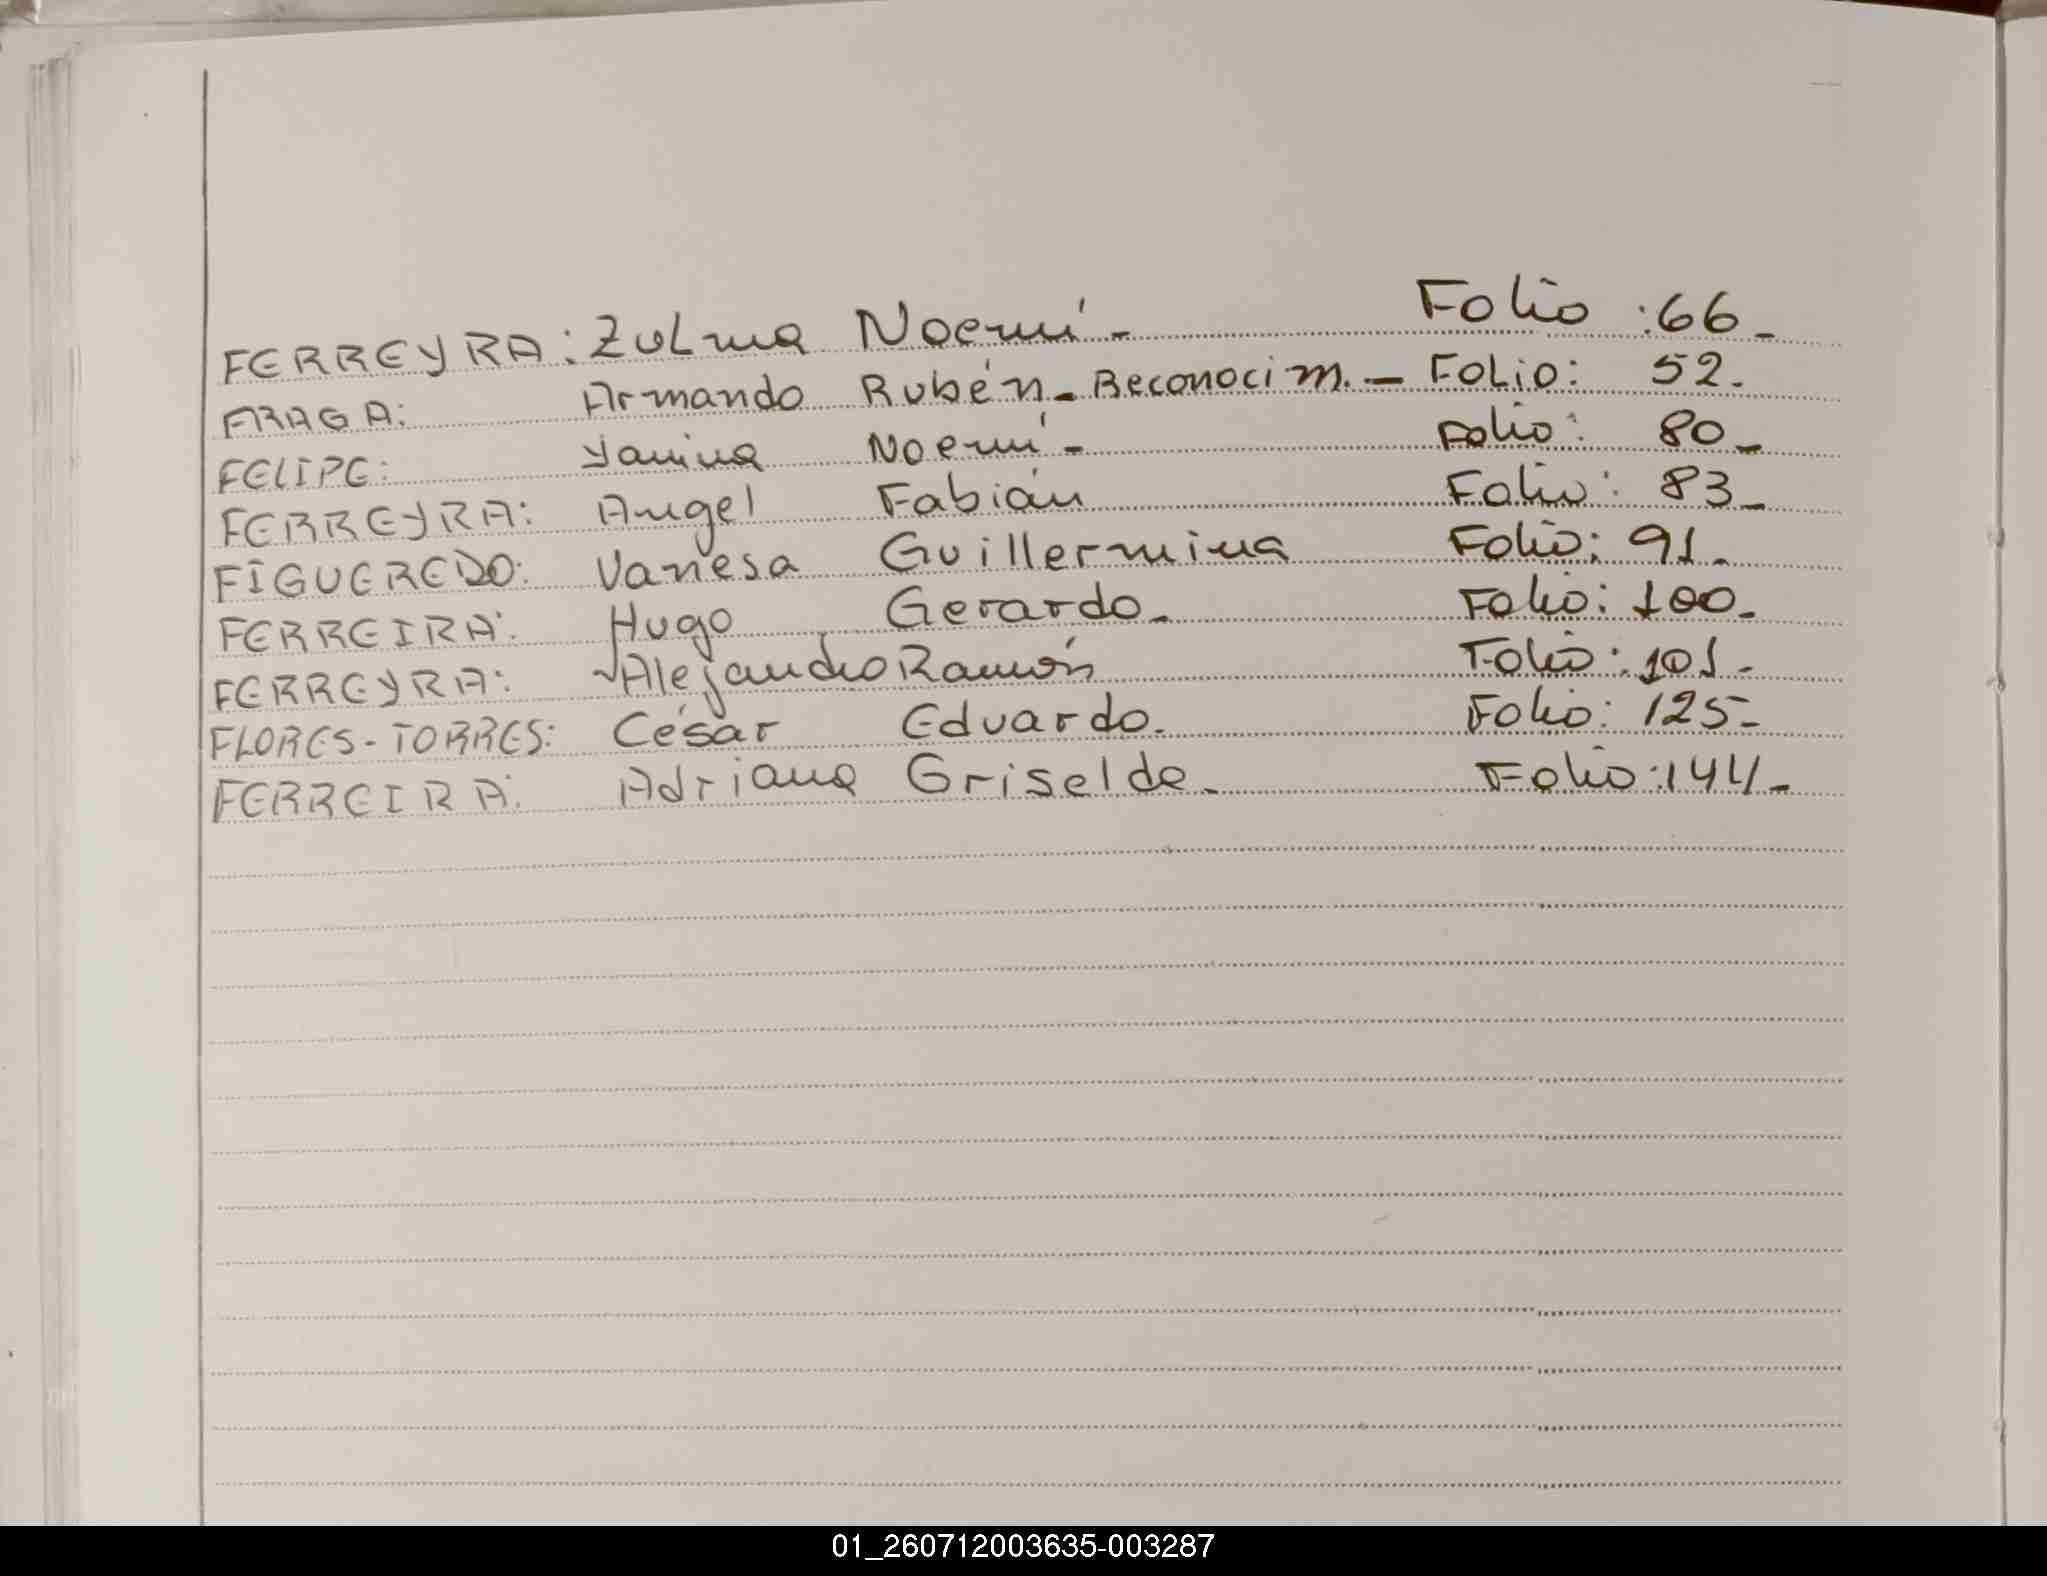 FERREYRA: Zulma Noemí - Folio : 66 -
FRAGA: Armando Rubén - Reconocim. - Folio: 52.
FELIPE: Yanina Noemí - Folio: 80 -
FERREYRA: Angel Fabián Folio: 83 -
FIGUEREDO: Vanesa Guillermina Folio: 91 -
FERREIRA: Hugo Gerardo. Folio: 100.
FERREYRA: Alejandro Ramón Folio: 101 -
FLORES-TORRES: César Eduardo. Folio: 125 -
FERREIRA: Adriana Griselda. Folio: 144 -
01_260712003635-003287